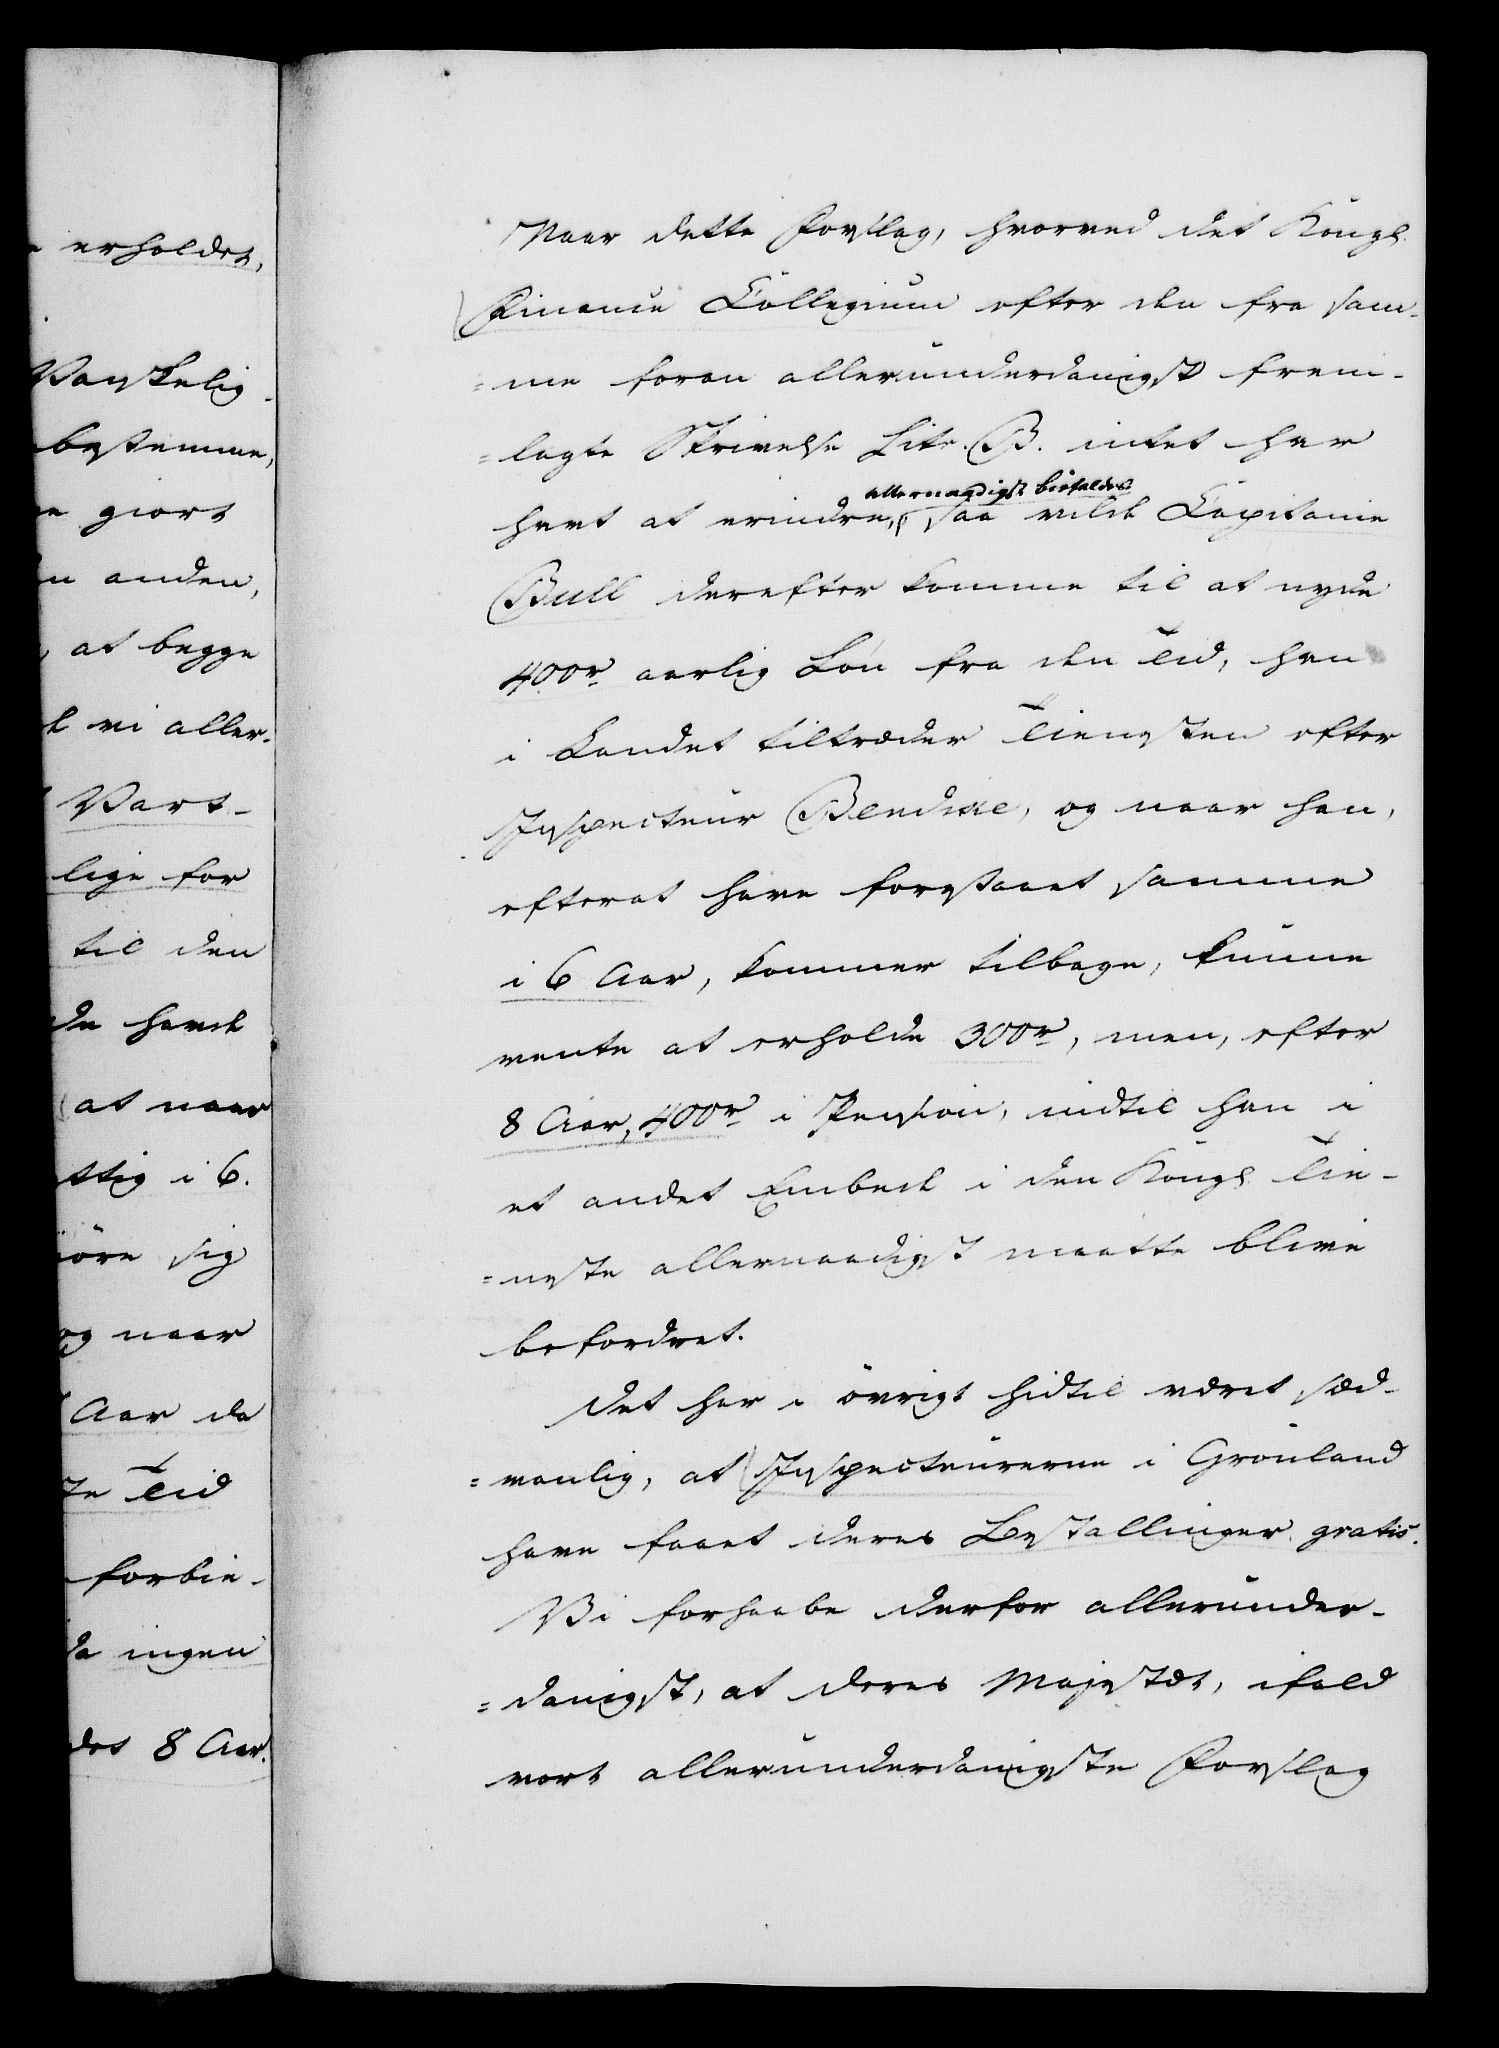 erholdes,
Vanskelig-
bestemme,
giort
anden,
at begge
vi aller-
Vars-
lige for
til den
havde
at naar
ttig i 6.
øre sig
og naar
Aar da
te Tid
forbin-
da ingen
des 8 Aar.
Naar dette Forslag, hvorved det Kongl.
Finance Collegium efter den fra sam-
=me foran allerunderdanigst frem-
=lagte Skrivelse Litr. B. intet har
allernaadigst bifaldes
havt at erindre, saa vilde Capitaine
Bull derefter komme til at nyde
400r aarlig Løn fra den Tid, han
i Landet tiltræder Tienesten efter
Inspecteur Bendixe, og naar han,
efterat have forestaaet samme
i 6 Aar, kommer tilbage, kunne
vente at erholde 300r, men, efter
8 Aar, 400r i Pension, indtil han i
et andet Embede i den Kongl. Tie-
=neste allernaadigst maatte blive
befordret.
Det har i øvrigt hidtil været sæd-
=vanlig, at Inspecteurerne i Grønland
have faaet deres Bestallinger gratis.
Vi forhaabe derfor allerunder-
=danigst, at Deres Majestæt, ifald
vort allerunderdanigste Forslag